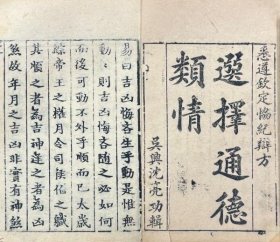 悉遵欽定恊紀辨方
選擇通德
類情
吳興沈亮功輯
易曰吉凶悔吝生乎動是惟無
動〻則吉凶悔吝隨之必如何
而後可動不外乎順而已太歲
帝王之權月令司侯伯之職
其順之者為吉神逆之者為凶
煞故年月之吉凶非實有神煞